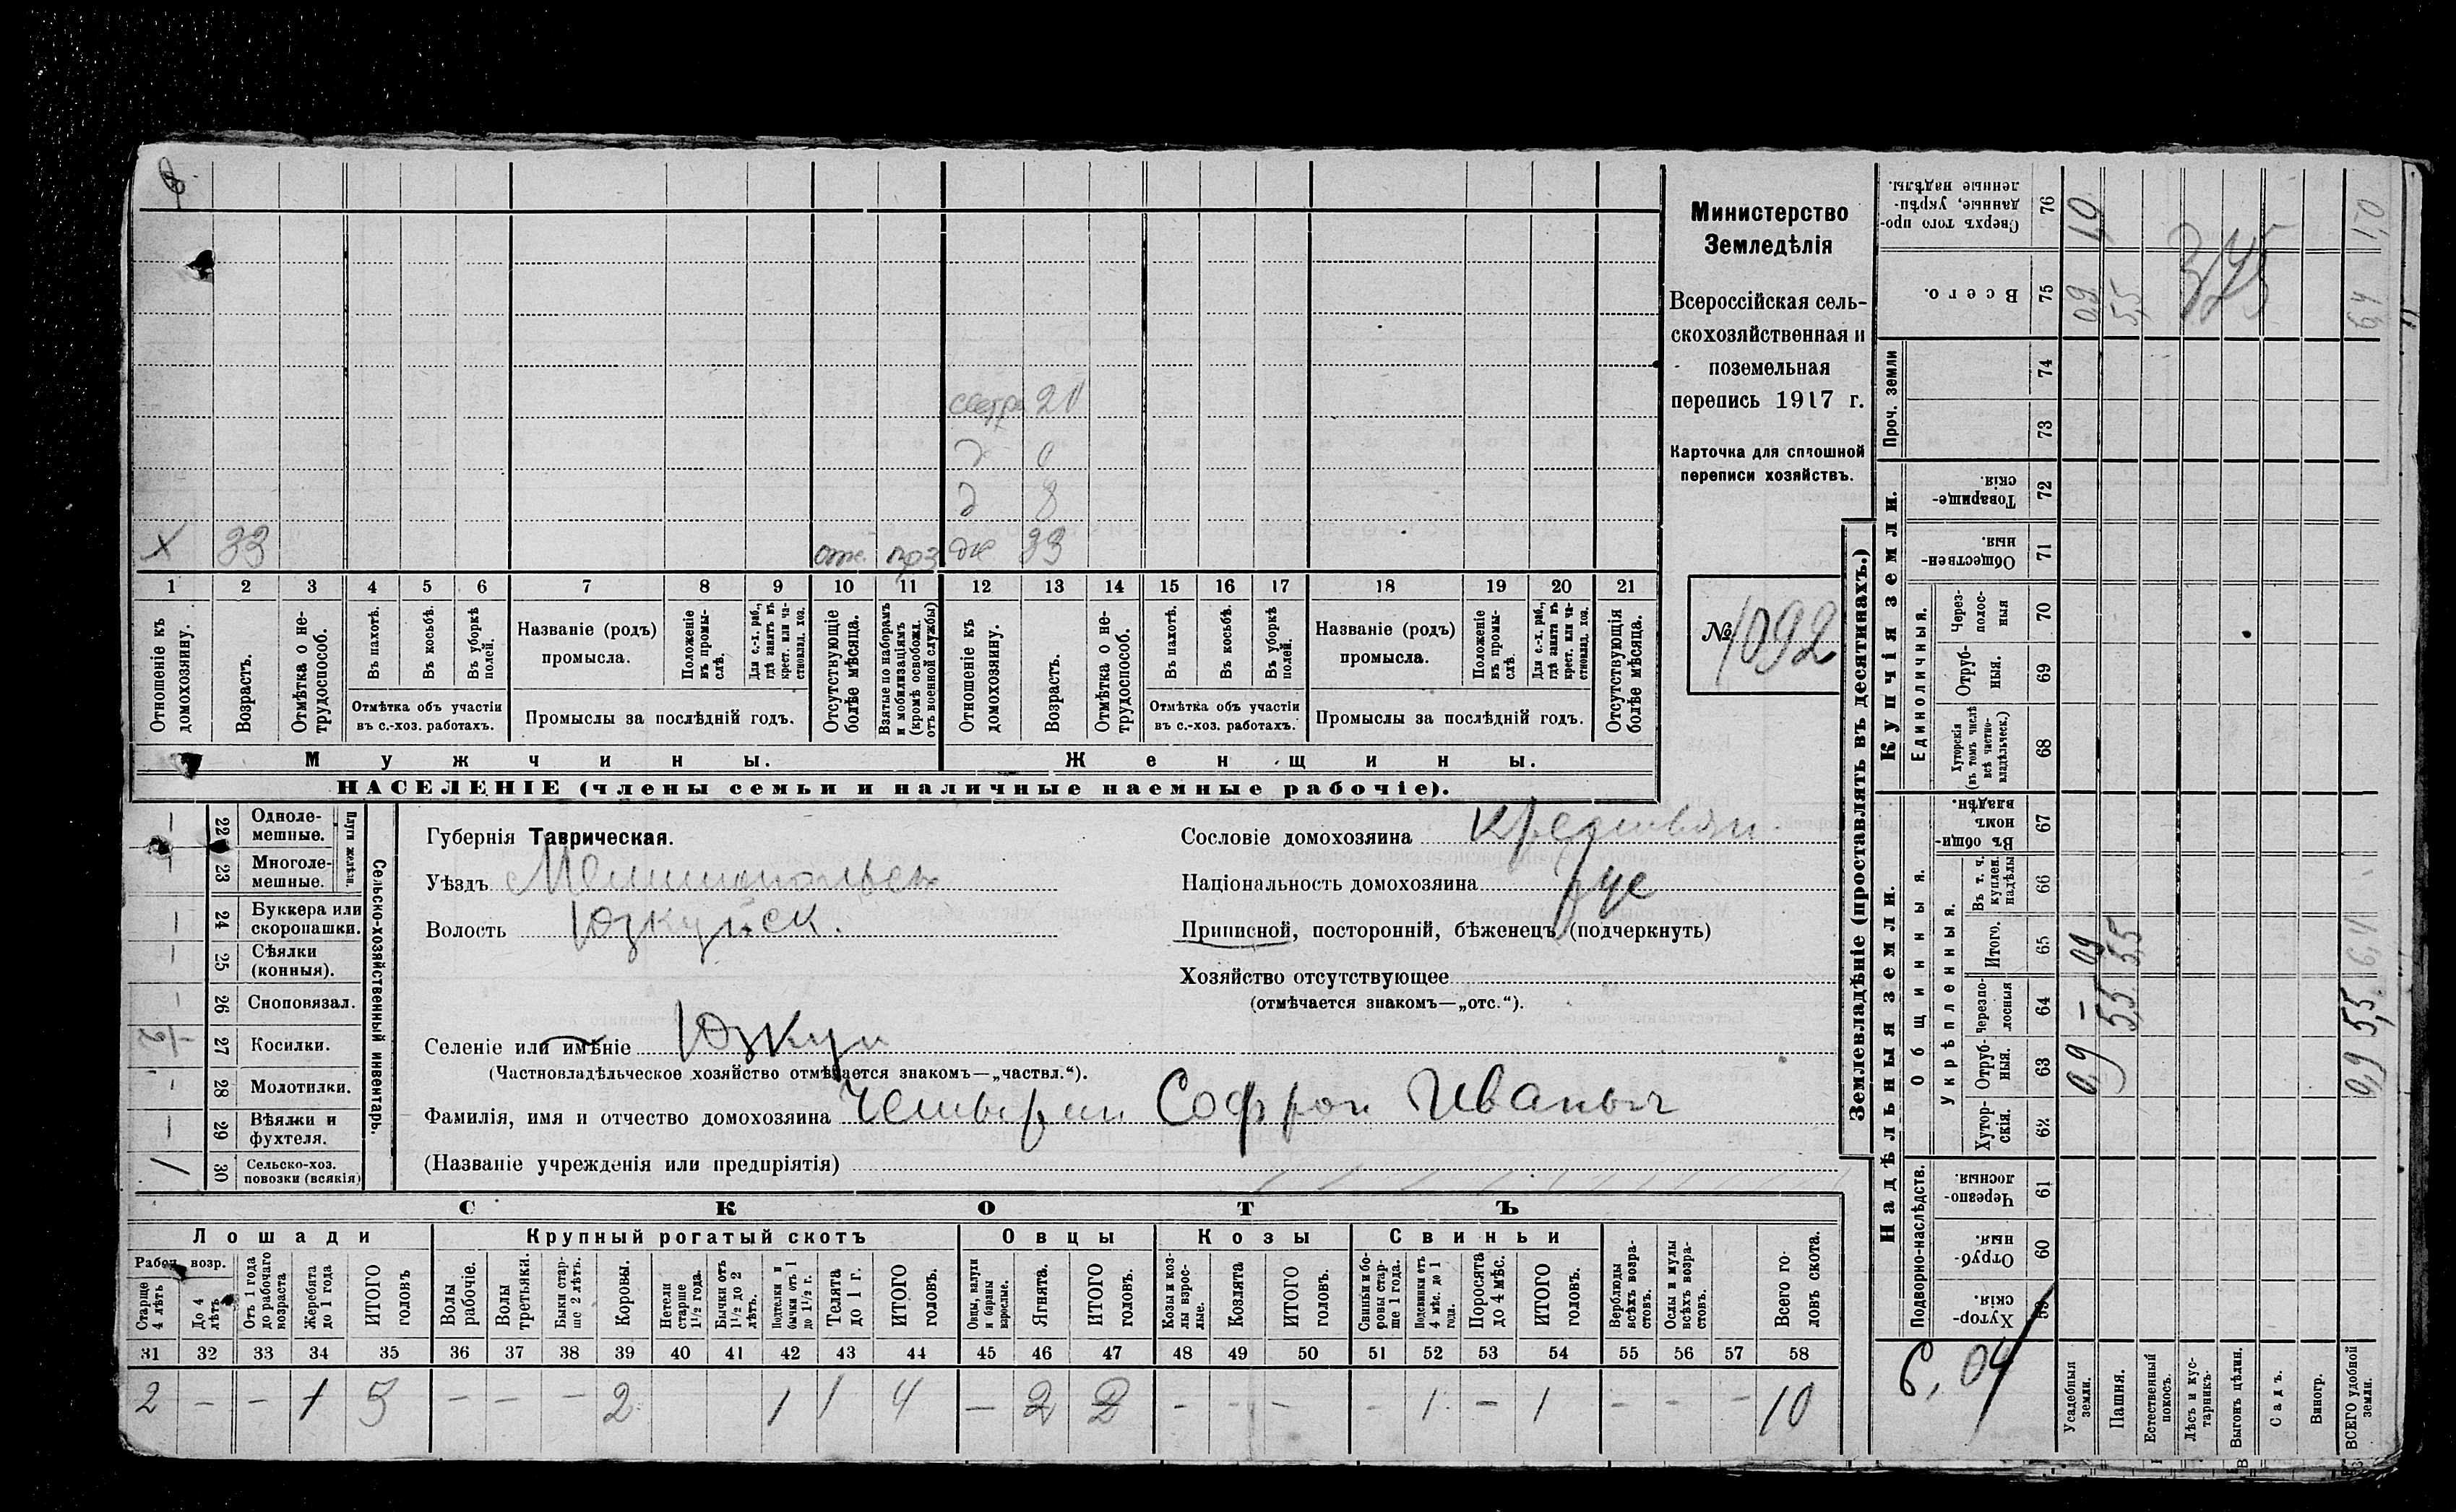 сестра 20
д 0
д 8
х 33 отс. поз же 33
1 2 3 4 5 6 7 8 9 10 11 12 13 14 15 16 17 18 19 20 21
Отношеніе къ домохозяину.
Возрастъ.
Отмѣтка о нетрудоспособ.
Въ пахотѣ.
Въ косьбѣ.
Въ уборкѣ полей.
Отмѣтка объ участіи въ с.-хоз. работахъ.
Названіе (родъ) промысла.
Положеніе въ промыслѣ.
Для с.-х. раб., гдѣ занятъ въ крест. или частновлад. хоз.
Промыслы за послѣдній годъ.
Отсутствующіе болѣе мѣсяца.
Взятые по наборамъ и мобилизаціямъ (кромѣ освобожд. отъ военной службы)
Отношеніе къ домохозяину.
Возрастъ.
Отмѣтка о нетрудоспособ.
Въ пахотѣ.
Въ косьбѣ.
Въ уборкѣ полей.
Отмѣтка объ участіи въ с.-хоз. работахъ.
Названіе (родъ) промысла.
Положеніе въ промыслѣ.
Для с.-х. раб., гдѣ занята въ крест. или частновлад. хоз.
Промыслы за послѣдній годъ.
Отсутствующія болѣе мѣсяца.
Мужчины. Женщины.
НАСЕЛЕНІЕ (члены семьи и наличные наемные рабочіе).
Министерство
Земледѣлія
Всероссійская сель-
скохозяйственная и
поземельная
перепись 1917 г.
Карточка для сплошной
переписи хозяйствъ.
№ 1092
Сельско-хозяйственный инвентарь.
Плуги желѣзн.
— 22 Одноле-мешные.
— 23 Многоле-мешные.
— 24 Буккера или скоропашки.
— 25 Сѣялки (конныя).
— 26 Сноповязал.
1/2 27 Косилки.
— 28 Молотилки.
— 29 Вѣялки и фухтеля.
1 30 Сельско-хоз. повозки (всякія)
Губернія Таврическая.
Уѣздъ Мелитопольск
Волость Юзкуйск.
Сословіе домохозяина крестьян.
Національность домохозяина рус
Приписной, посторонній, бѣженецъ (подчеркнуть)
Хозяйство отсутствующее
(отмѣчается знакомъ—„отс.“).
Селеніе или имѣніе Юзкуи
(Частновладѣльческое хозяйство отмѣчается знакомъ—„частвл.“).
Фамилія, имя и отчество домохозяина Четырин Софрон Иваныч
(Названіе учрежденія или предпріятія)
СКОТЪ
Лошади Крупный рогатый скотъ Овцы Козы Свиньи
Рабоч. возр.
Старше 4 лѣтъ
До 4 лѣтъ
Отъ 1 года до рабочаго возраста
Жеребята до 1 года
ИТОГО головъ
Волы рабочіе.
Волы третьяки.
Быки старше 2 лѣтъ.
Коровы.
Нетели старше 1½ года.
Бычки отъ 1½ до 2 лѣтъ.
Подтелки и бычки отъ 1 до 1½ г.
Телята до 1 г.
ИТОГО головъ.
Овцы, валухи и бараны взрослые.
Ягнята.
ИТОГО головъ.
Козы и козлы взрослые.
Козлята
ИТОГО головъ.
Свиньи и боровы старше 1 года.
Подсвинки отъ 4 мѣс. до 1 года.
Поросята до 4 мѣс.
ИТОГО головъ.
Верблюды всѣхъ возрастовъ.
Ослы и мулы всѣхъ возрастовъ.
Всего головъ скота.
31 32 33 34 35 36 37 38 39 40 41 42 43 44 45 46 47 48 49 50 51 52 53 54 55 56 57 58
2 — — 1 3 — — — 2 1 1 4 — 2 2 — — — — 1 — 1 — — — 10
Землевладѣніе (проставлять въ десятинахъ.)
Надѣльныя земли. Купчія земли. Проч. земли
Подворно-наслѣдств.
Общинныя.
Укрѣпленныя.
Единоличныя.
Хуторскія 59
Отрубныя. 60
Черезполосныя. 61
Хуторскія. 62
Отрубныя. 63
Черезполосныя 64
Итого. 65
Въ т. ч. куплен. надѣлы 66
Въ общиномъ владѣн. 67
Хуторскія (въ томъ числѣ всѣ частновладѣльческ.) 68
Отрубныя. 69
Черезполосныя 70
Общественныя. 71
Товарищескія. 72
73
74
Всего. 75
Сверхъ того проданные, укрѣпленные надѣлы. 76
Усадебныя земли. 0,9 — 0,9 0,9 1,0
Пашня. 5,5 5,5 5,5
Естественный покосъ.
Лѣсъ и кустарникъ.
Выгонъ цѣлин.
Садъ.
Виногр.
ВСЕГО удобной земли. 0,9 5,5 6,4 6,4 1,0
345
6,04